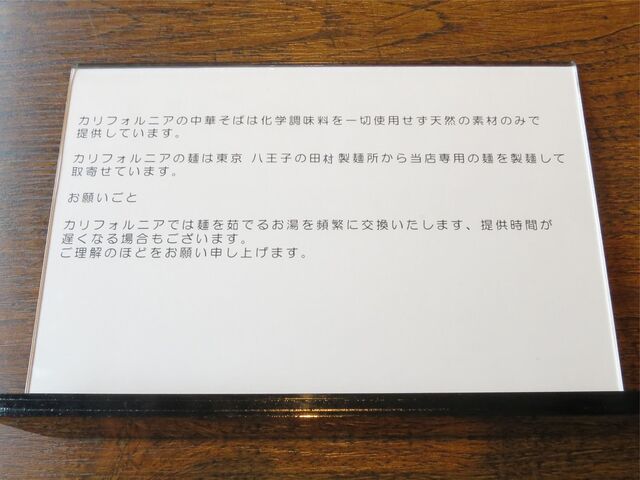 カリフォルニアの中華そばは化学調味料を一切使用せず天然の素材のみで
提供しています。
カリフォルニアの麺は東京 八王子の田村製麺所から当店専用の麺を製麺して
取寄せています。
お願いごと
カリフォルニアでは麺を茹でるお湯を頻繁に交換いたします、提供時間が
遅くなる場合もございます。
ご理解のほどをお願い申し上げます。